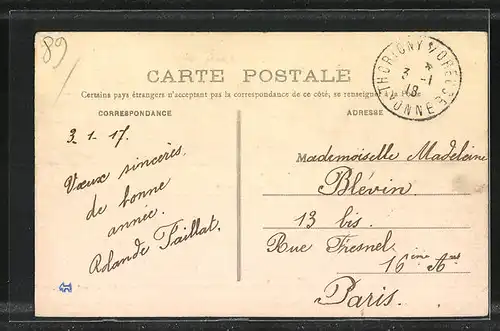 89
THORIGNY S/OREUSE
3 -1
18
YONNE
CARTE POSTALE
Certains pays étrangers n'acceptant pas la correspondance de ce côté, se renseigner à la Poste
CORRESPONDANCE
ADRESSE
3-1-17.
Vœux sincères.
de bonne
année.
Rolande Taillat.
Mademoiselle Madeleine
Blévin.
13 bis.
Rue Fresnel
16ème Arrt
Paris.